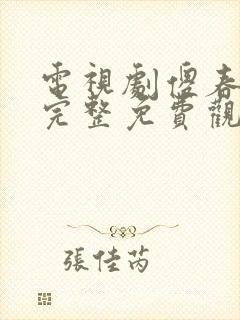 電視劇傻春
完整免費觀
張佳芮